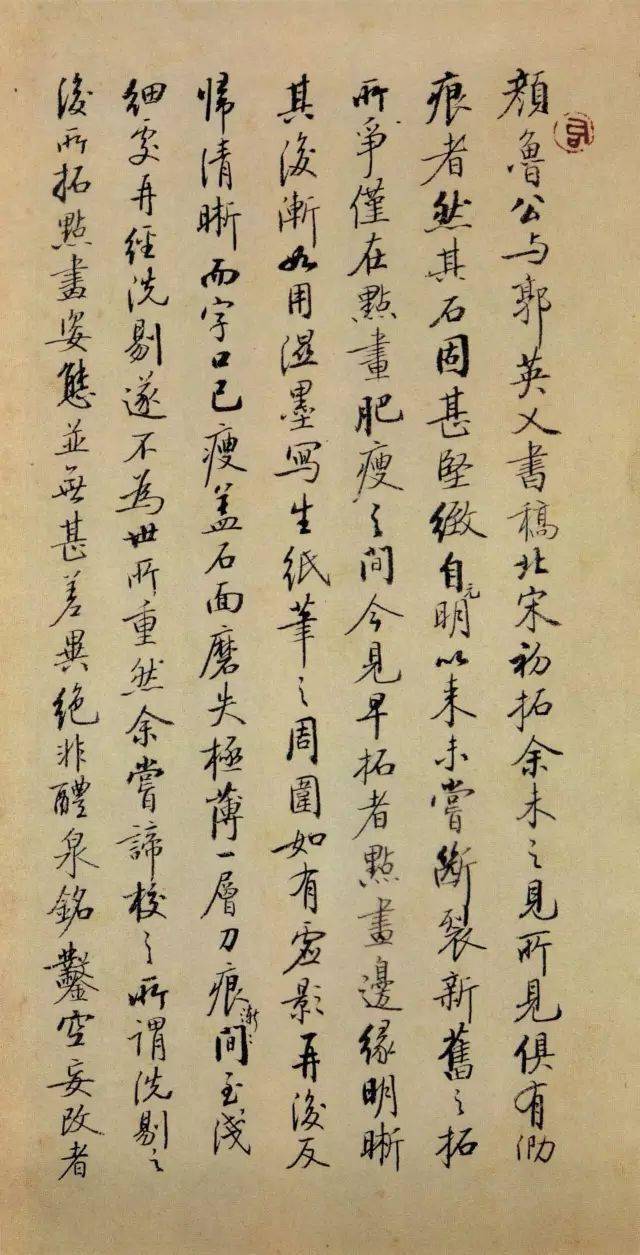 顏魯公与郭英乂書稿北宋初拓余未之見所見俱有泐
痕者然其石固甚堅緻自元明以来未嘗斷裂新舊之拓
所爭僅在點畫肥瘦之間今見早拓者點畫邊緣明晰
其後漸如用溼墨寫生紙筆之周圍如有虛影再後反
歸清晰而字口已瘦盖石面磨失極薄一層刀痕漸漸間至淺
細處再經洗剔遂不為世所重然余嘗諦校之所謂洗剔之
後所拓點畫姿態並無甚差異絕非醴泉銘鑿空妄改者